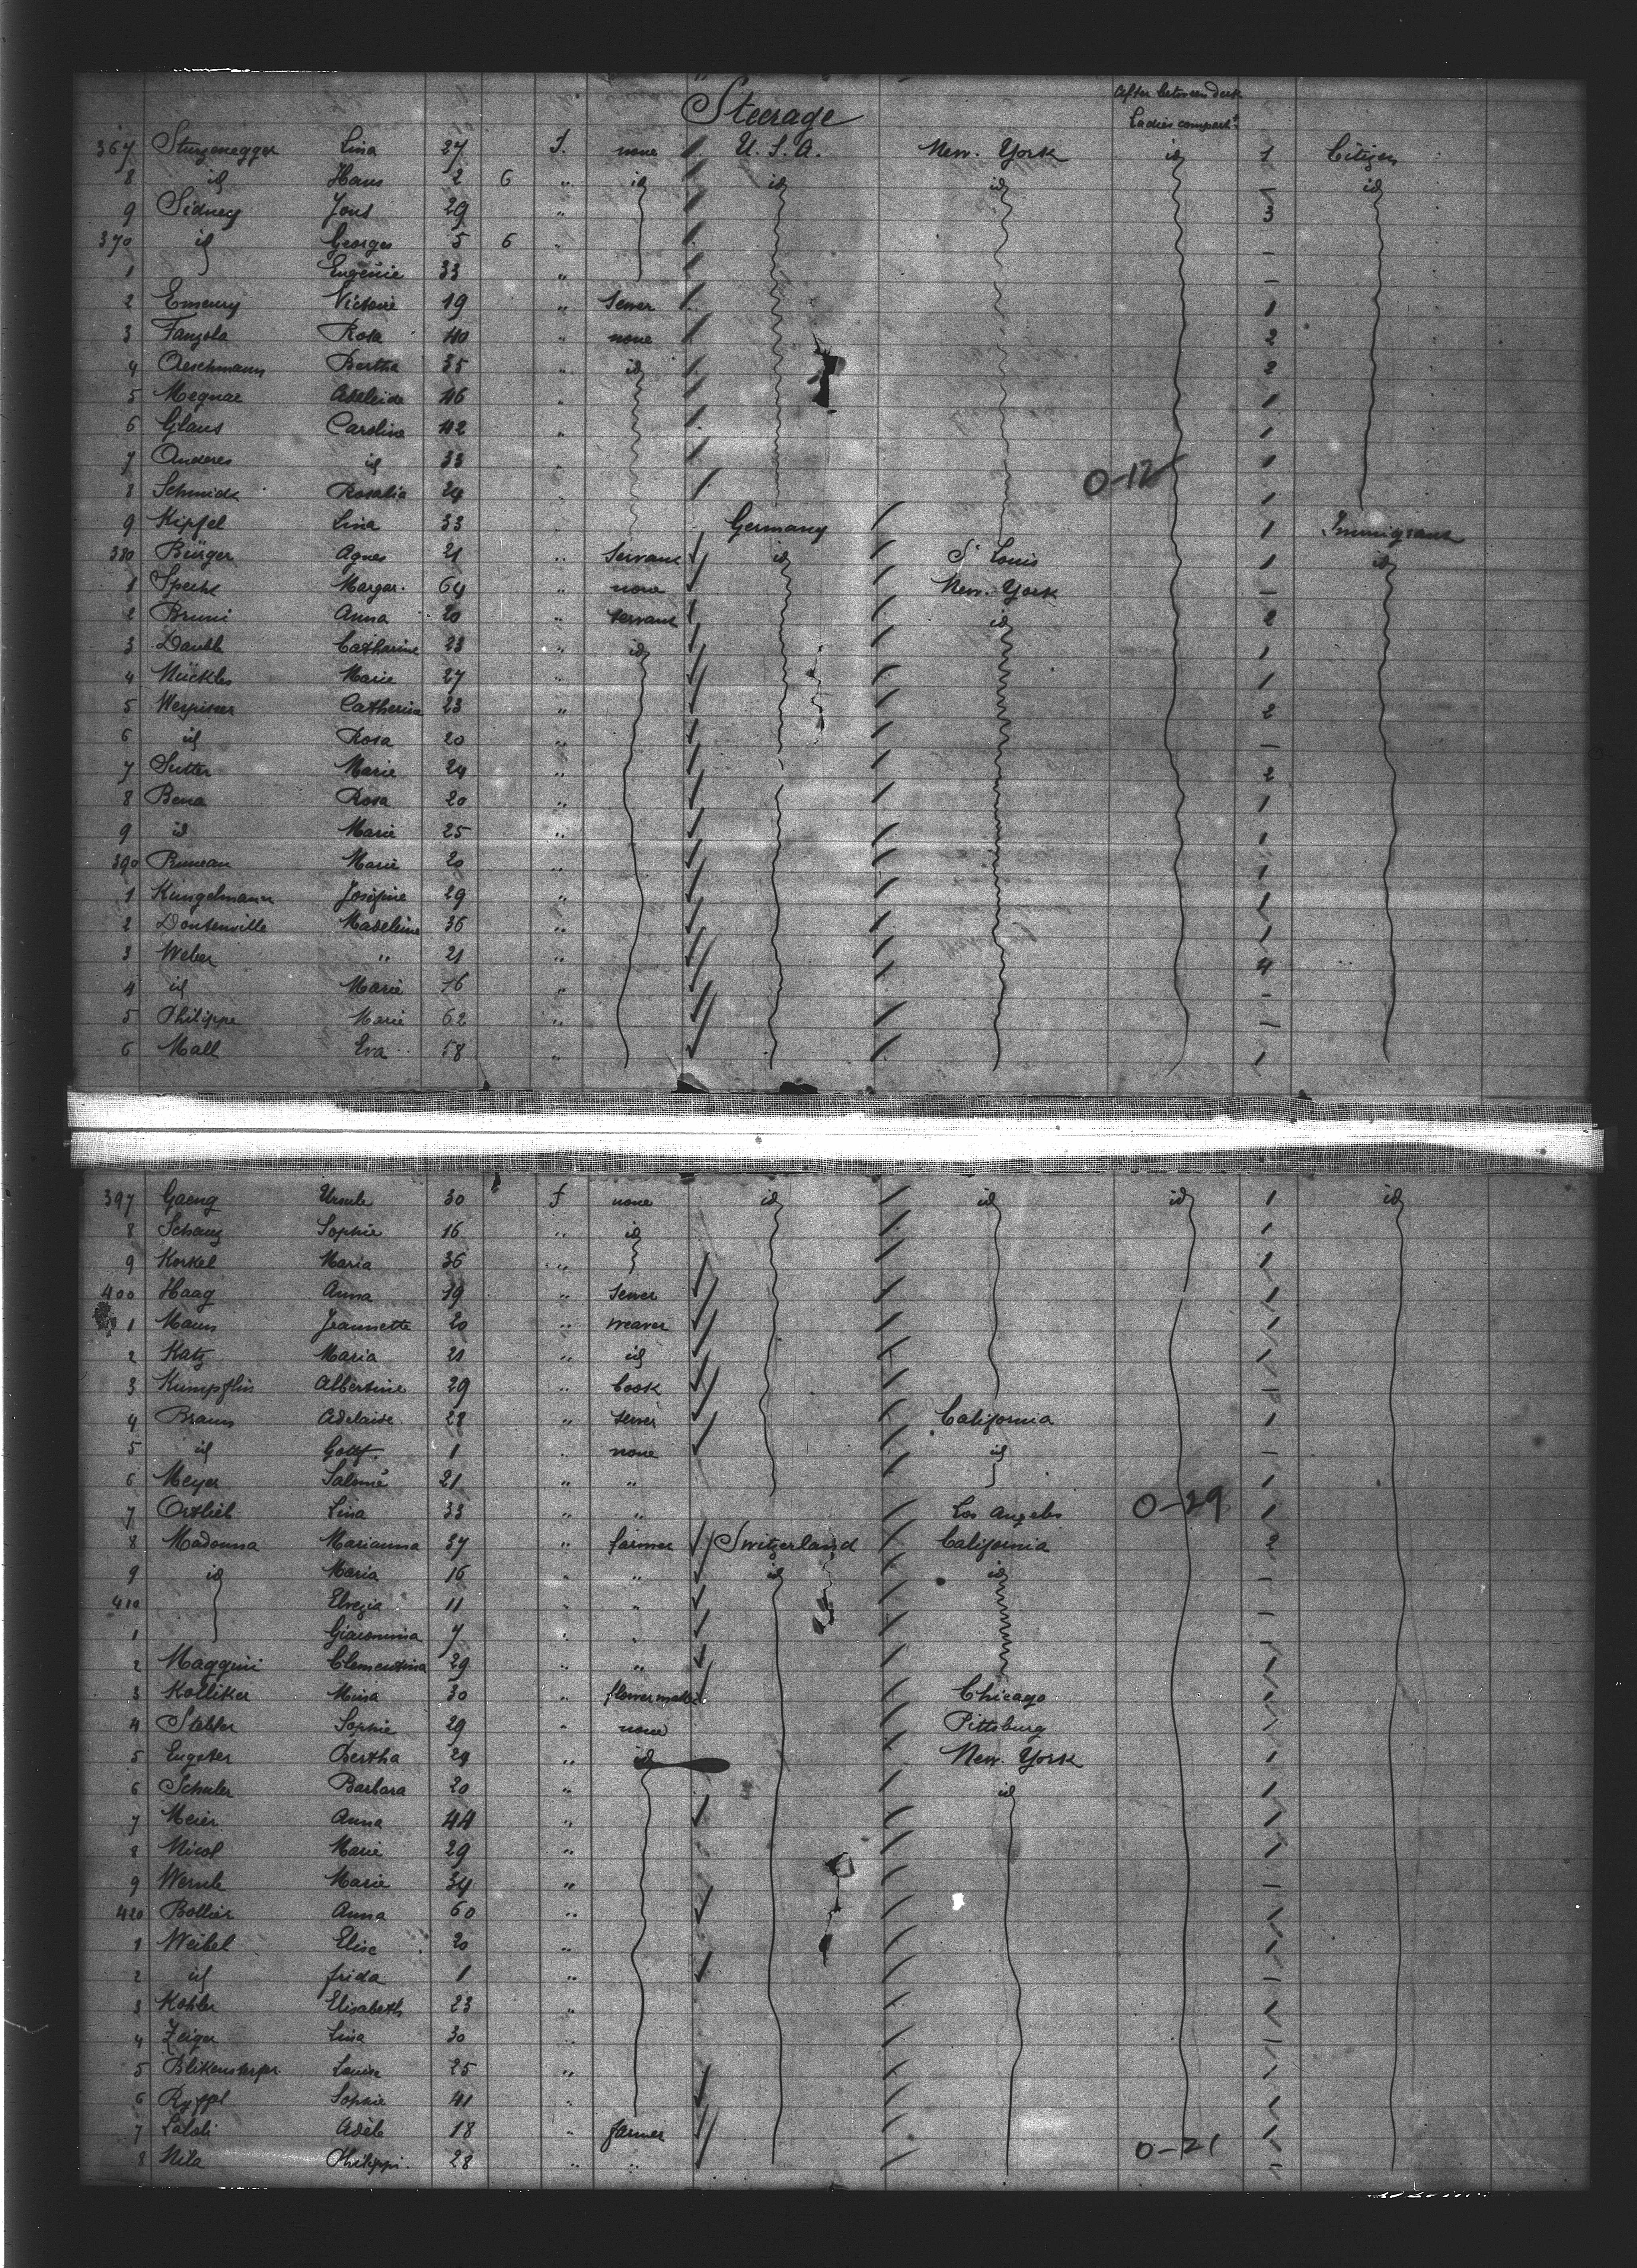 Steerage
After between deck
Ladies compart.t
367 Sturzenegger Lina 27 f. none U.S.A. New-York id 1 Citizen
8 id Hans 2 6 " id id id - id
9 Sidney Jons 29 " 3
370 id Georges 5 6 " -
1 Eugénie 33 " -
2 Emeury Victoire 19 " Sewer 1
3 Fanzola Rosa 40 " none 2
4 Aeschmann Bertha 35 " id 2
5 Megnar Adeleide 46 " 1
6 Glaus Carolina 42 " 1
7 Anderes id 33 " 1
0-12
8 Schmidt Rosalia 24 " 1
9 Kipfel Lina 33 Germany 1 Immigrant
380 Bürger Agnes 21 " Servant id St Louis 1 id
1 Specht Margar. 64 " none New-York -
2 Bruni Anna 20 " Servant id 2
3 Daubli Catharine 23 " id 1
4 Nückles Marie 27 " 1
5 Catherina 23 " 2
6 id Rosa 20 " -
7 Sutter Marie 24 " 2
8 Bena Rosa 20 " 1
9 id Marie 25 " 1
390 Marie 20 " 1
1 Küngelmann Josépine 29 " 1
2 Dontenville Madeleine 36 " 1
3 Weber " 21 " 4
4 id Marie 16 " -
5 Philippe Marie 62 " -
6 Mall Eva 58 " 1
397 Gaeng Ursule 30 f none id id id 1 id
8 Schanz Sophie 16 " id 1
9 Korkel Maria 36 " 1
400 Haag Anna 19 " Sewer 1
1 Mann Jeannette 20 " weaver 1
2 Katz Maria 21 " id 1
3 Kumpflin Albertine 29 " Cook -
4 Braun Adelaide 28 " sewer California 1
5 id Gottf. 1 none id -
6 Meyer Salomé 21 " " 1
7 Ortlieb Lina 33 " " Los Angeles 0-29 1
8 Madonna Marianna 37 " farmer Switzerland California 2
9 id Maria 16 " " id id -
410 Elvezia 11 " " -
1 Giacomina 7 " " -
2 Maggini Clementina 29 " " 1
3 Kolliker Mina 30 " flower maker Chicago 1
4 Stebler Sophie 29 " none Pittsburg 1
5 Eugster Bertha 29 " id New-York 1
6 Schuler Barbara 20 " id 1
7 Meier Anna 44 " 1
8 Nicol Marie 29 " 1
9 Wernle Marie 34 " -
420 Bollier Anna 60 " 1
1 Weibel Elise 20 " 1
2 id frida 1 " -
3 Kohler Elisabeth 23 " 1
4 Zeiger Lina 30 " 1
5 Blikenstorfer Louise 25 " 1
6 Ryffel Sophie 41 " 1
7 Adèle 18 " farmer 1
8 Nila Philippi. 28 " " 0-21 -